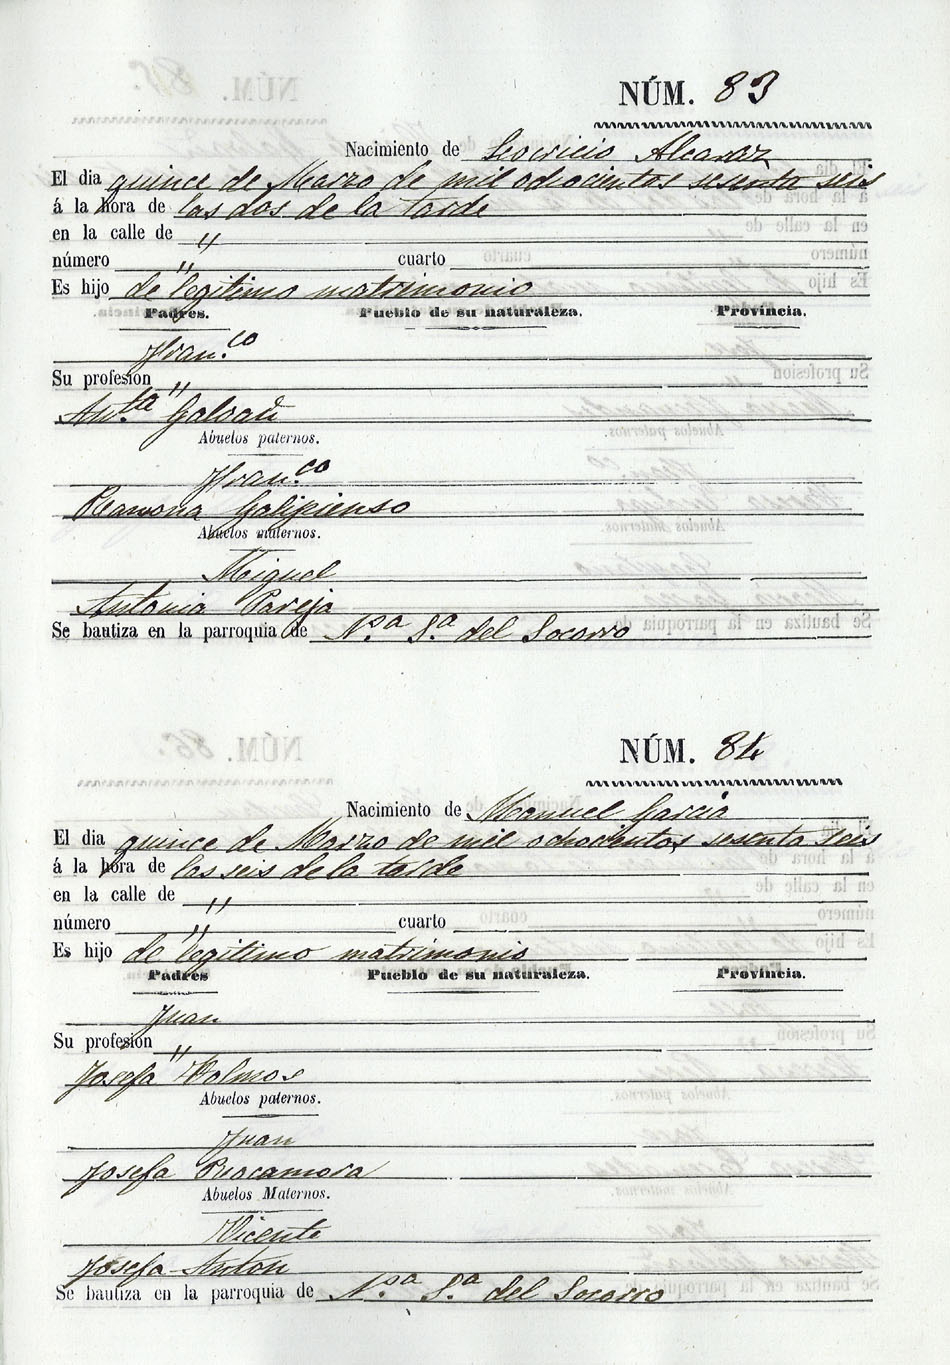 NÚM. 83
Nacimiento de Leocricio Alcaraz
El dia quince de Marzo de mil odrocientos sesenta seis
á la hora de las dos de la tarde
en la calle de "
número " cuarto
Es hijo de legitimo matrimonio
Padres. Pueblo de su naturaleza. Provincia.
Fran.co
Su profesion "
An.ta Galvañ
Abuelos paternos.
Fran.co
Ramona Galipienso
Abuelos maternos.
Miguel
Antonia Pareja
Se bautiza en la parroquia de N.a S.a del Socorro
NÚM. 84
Nacimiento de Manuel Garcia
El dia quince de Marzo de mil odrocientos sesenta seis
á la hora de las seis de la tarde
en la calle de "
número " cuarto
Es hijo de legitimo matrimonio
Padres Pueblo de su naturaleza. Provincia.
Juan
Su profesion "
Josefa Bolmos
Abuelos paternos.
Juan
Josefa Rocamora
Abuelos Maternos.
Vicente
Josefa Anton
Se bautiza en la parroquia de N.a S.a del Socorro